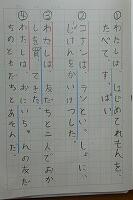 ①わたしは、はじめてれもんを、
たべて、すっぱい
②コナンは、ランといっしょに、
じけんをかいけつした。
③わたしは、友だちと二人でおか
しを買ってきた。
④わたしは、おにいちゃんの友だ
ちとともだちとあそんだ。